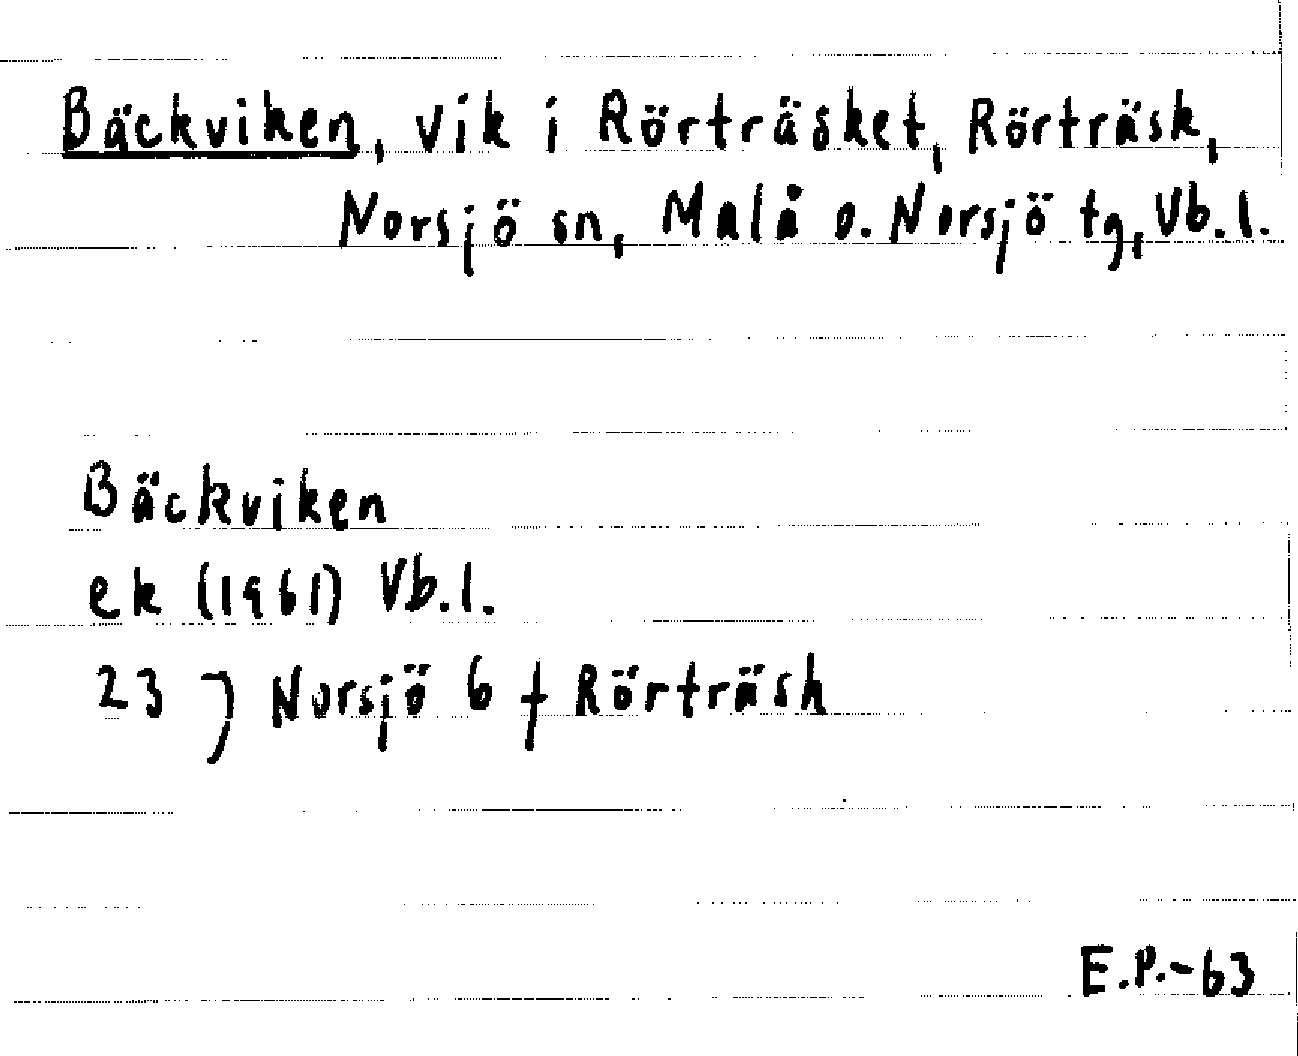 Bäckviken, vik i Rörträsket, Rörträsk,
Norsjö sn, Malå o. Norsjö tg, Vb.l.
Bäckviken
ek (1961) Vb.l.
23 J Norsjö 6 f Rörträsk
E.P.-63